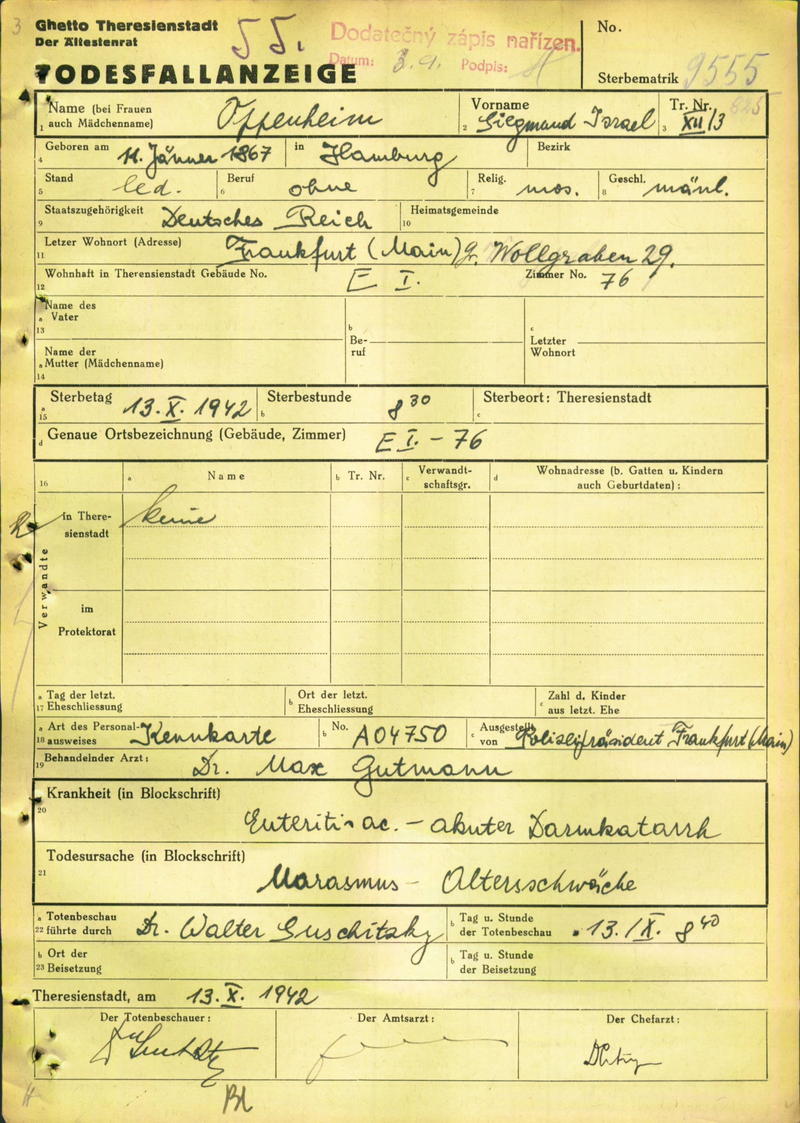 3
Ghetto Theresienstadt
Der Ältestenrat
55.
Dodatečný zápis nařízen.
Datum: 3.9. Podpis:
TODESFALLANZEIGE
No.
Sterbematrik 9555
Name (bei Frauen auch Mädchenname) 1 Oppenheim
Vorname 2 Siegmund Israel
Tr. Nr. 3 XII/3
Geboren am 4 11. Jänner 1867 in Hamburg Bezirk
Stand 5 led. Beruf 6 ohne Relig. 7 mos. Geschl. 8 mänl.
Staatszugehörigkeit 9 Deutsches Reich Heimatsgemeinde 10
Letzer Wohnort (Adresse) 11 Frankfurt (Main) Gr. Wollgraben 29.
Wohnhaft in Therensienstadt Gebäude No. 12 E I. Zimmer No. 76
Name des Vater a 13
b Beruf
c Letzter Wohnort
Name der Mutter (Mädchenname) a 14
Sterbetag a 15 13. X. 1942 Sterbestunde b 8 30 Sterbeort: Theresienstadt c
d Genaue Ortsbezeichnung (Gebäude, Zimmer) E I. - 76
16 a Name b Tr. Nr. c Verwandtschaftsgr. d Wohnadresse (b. Gatten u. Kindern auch Geburtdaten):
Verwandte
in Theresienstadt keine
im Protektorat
a 17 Tag der letzt. Eheschliessung b Ort der letzt. Eheschliessung c Zahl d. Kinder aus letzt. Ehe
a 18 Art des Personalausweises Kennkarte b No. A04750 c Ausgestellt von Polizeipräsident Frankfurt (Main)
19 Behandelnder Arzt: Dr. Max Gutmann
Krankheit (in Blockschrift)
20 Enteritis ac. - akuter Darmkatarrh
Todesursache (in Blockschrift)
21 Marasmus - Altersschwäche
a 22 Totenbeschau führte durch Dr. Walter Guschitzky b Tag u. Stunde der Totenbeschau 13./X. 8 40
b 23 Ort der Beisetzung b Tag u. Stunde der Beisetzung
Theresienstadt, am 13. X. 1942
Der Totenbeschauer: Der Amtsarzt: Der Chefarzt: